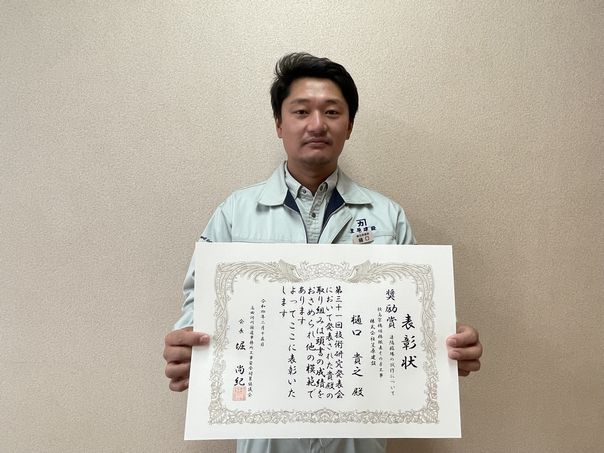 表彰状
奨励賞
株式会社笠原建設
樋口貴之殿
第三十一回技術研究発表会
において発表された貴殿の
取り組みは頭書の成績を
おさめられ他の模範で
あります
よってここに表彰いた
します
令和四年二月十五日
会長 堀 尚紀
樋口